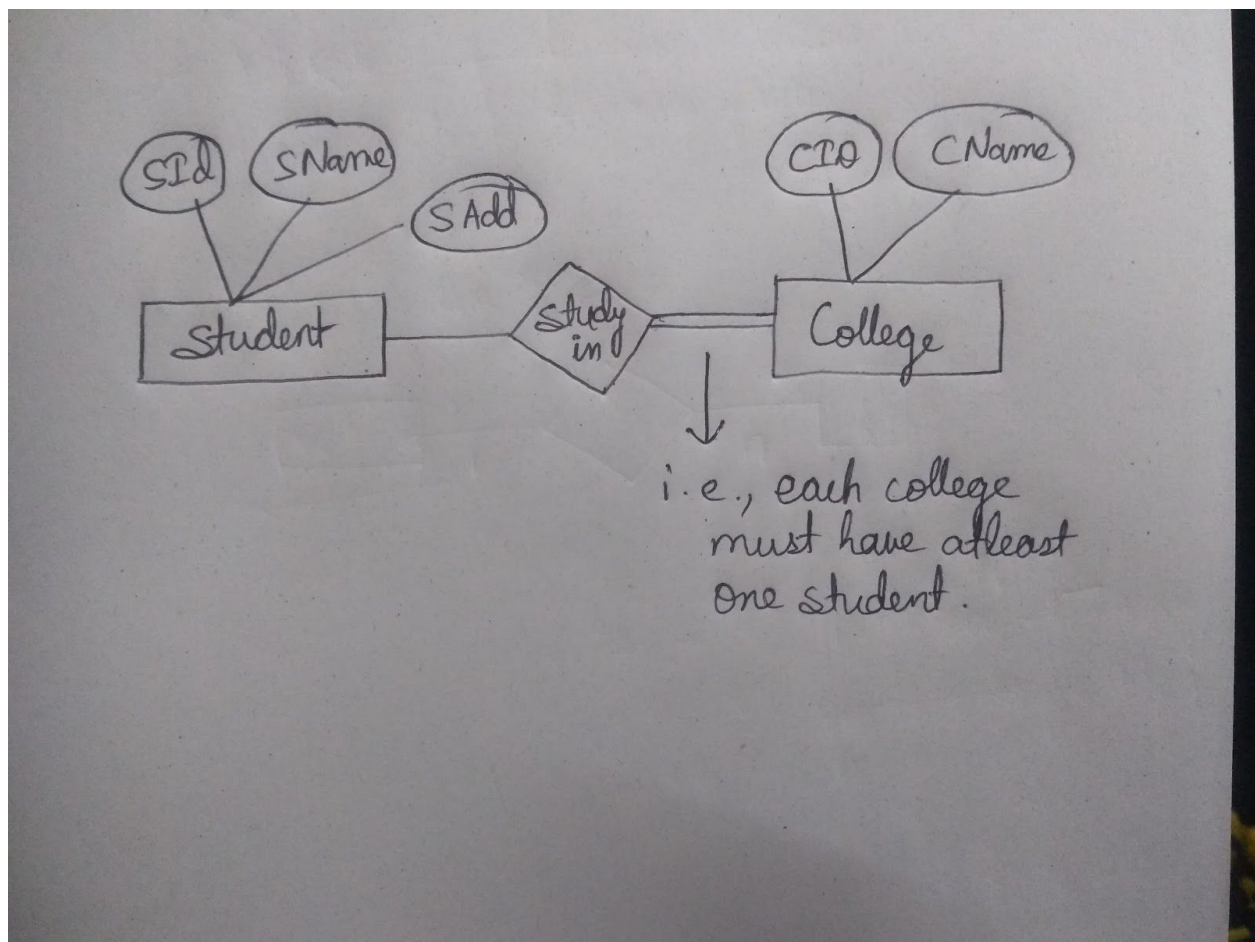 SId
SName
SAdd
CID
CName
Student
Study
in
College
i.e., each college
must have atleast
one student.